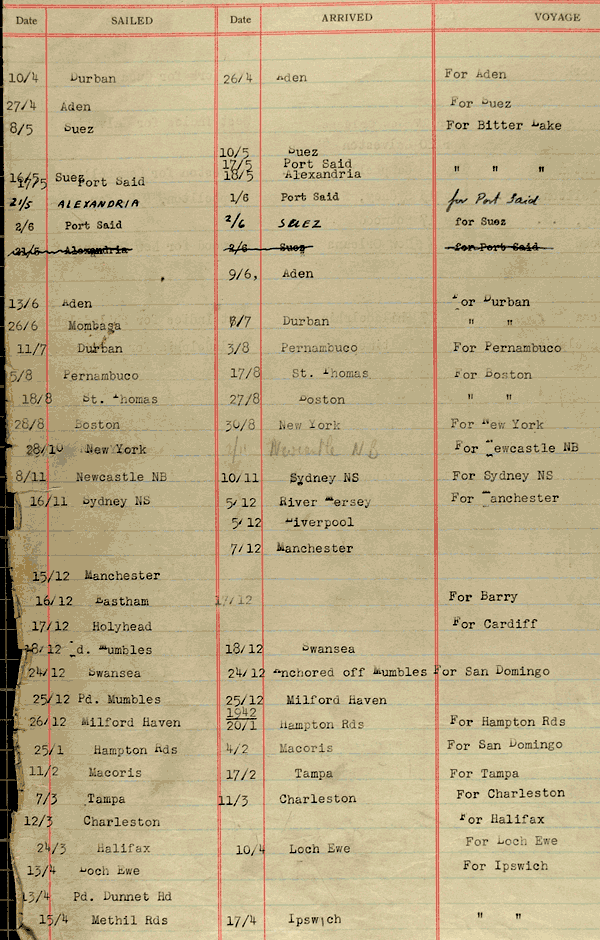 Date SAILED Date ARRIVED VOYAGE
10/4 Durban 26/4 Aden For Aden
27/4 Aden For Suez
8/5 Suez For Bitter Lake
10/5 Suez
17/5 Port Said
16/5 Suez 18/5 Alexandria " " "
17/5 Port Said
21/5 ALEXANDRIA 1/6 Port Said for Port Said
2/6 Port Said 2/6 SUEZ for Suez
21/5 Alexandria 2/6 Suez for Port Said
9/6, Aden
13/6 Aden For Durban
26/6 Mombasa 7/7 Durban " "
11/7 Durban 3/8 Pernambuco For Pernambuco
5/8 Pernambuco 17/8 St. Thomas For Boston
18/8 St. Thomas 27/8 Boston " "
28/8 Boston 30/8 New York For New York
28/10 New York Newcastle NB For Newcastle NB
8/11 Newcastle NB 10/11 Sydney NS For Sydney NS
16/11 Sydney NS 5/12 River Mersey For Manchester
5/12 Liverpool
7/12 Manchester
15/12 Manchester
16/12 Eastham 17/12 For Barry
17/12 Holyhead For Cardiff
18/12 Pd. Mumbles 18/12 Swansea
24/12 Swansea 24/12 Anchored off Mumbles For San Domingo
25/12 Pd. Mumbles 25/12 Milford Haven
1942
26/12 Milford Haven 20/1 Hampton Rds For Hampton Rds
25/1 Hampton Rds 4/2 Macoris For San Domingo
11/2 Macoris 17/2 Tampa For Tampa
7/3 Tampa 11/3 Charleston For Charleston
12/3 Charleston For Halifax
24/3 Halifax 10/4 Loch Ewe For Loch Ewe
13/4 Loch Ewe For Ipswich
13/4 Pd. Dunnet Hd
15/4 Methil Rds 17/4 Ipswich " "